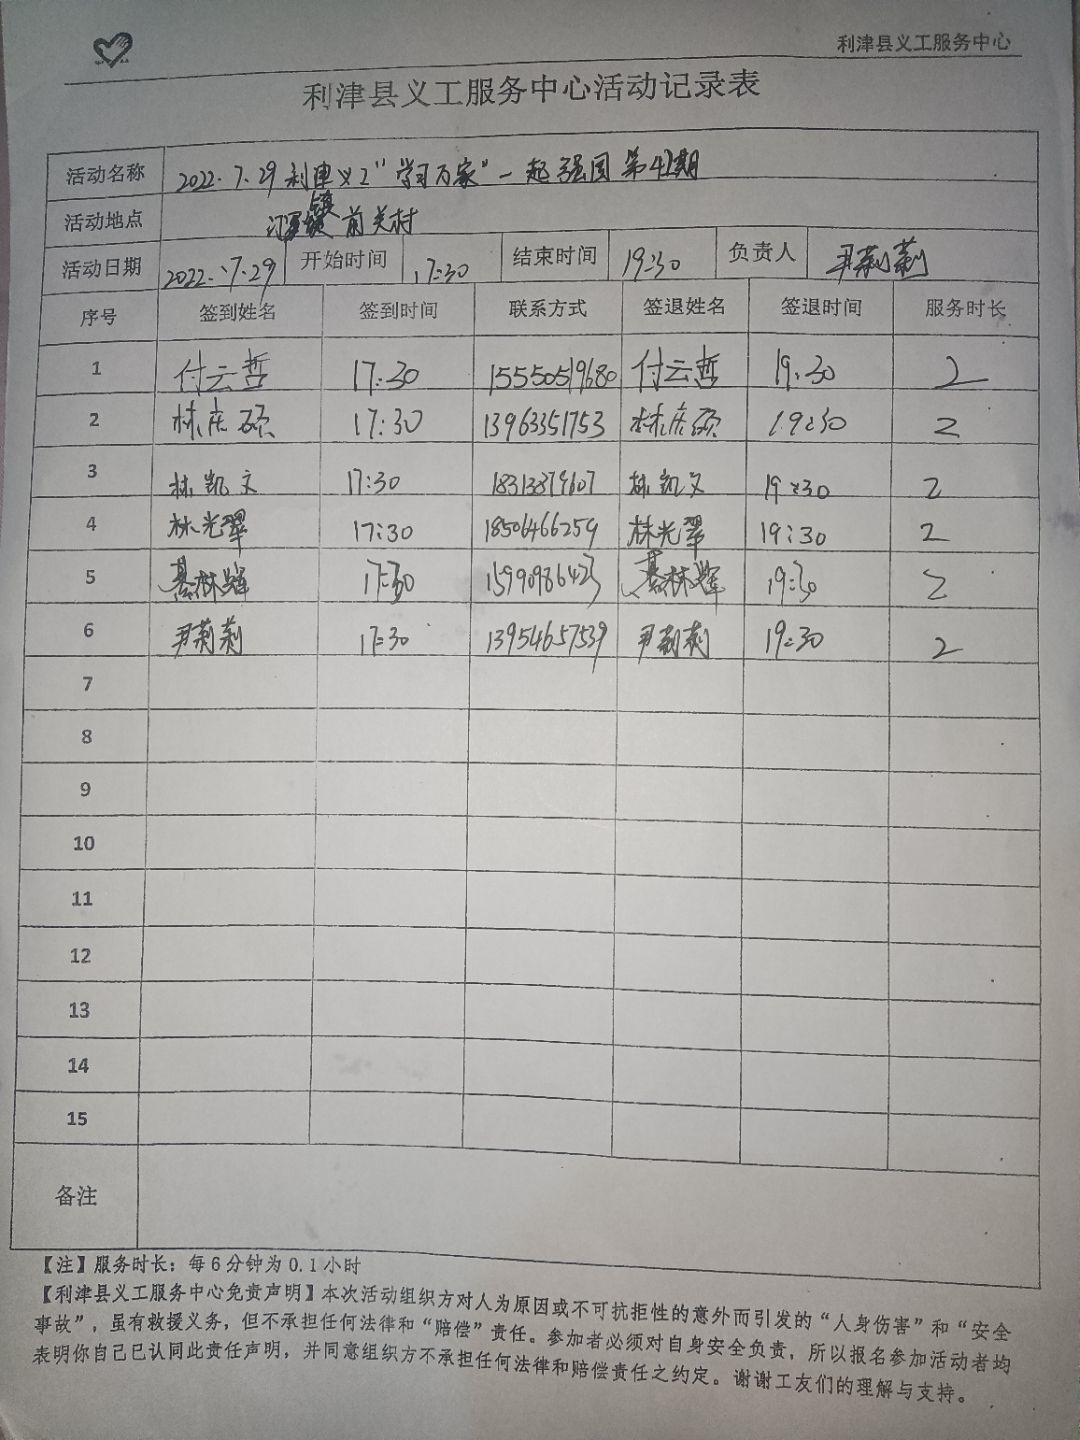 利津县义工服务中心
利津县义工服务中心活动记录表
活动名称 2022.7.29 利津义工"学习万家"一起强国 第41期
活动地点 镇 前关村
活动日期 2022.7.29 开始时间 17:30 结束时间 19:30 负责人 尹莉莉
序号 签到姓名 签到时间 联系方式 签退姓名 签退时间 服务时长
1 付云哲 17:30 15550519680 付云哲 19:30 2
2 林庆硕 17:30 13963351753 林庆硕 19:30 2
3 林凯文 17:30 林凯文 19:30 2
4 林光翠 17:30 18506466259 林光翠 19:30 2
5 綦林辉 17:30 綦林辉 19:30 2
6 尹莉莉 17:30 13954657539 尹莉莉 19:30 2
7
8
9
10
11
12
13
14
15
备注
【注】服务时长：每6分钟为0.1小时
【利津县义工服务中心免责声明】本次活动组织方对人为原因或不可抗拒性的意外而引发的“人身伤害”和“安全
事故”，虽有救援义务，但不承担任何法律和“赔偿”责任。参加者必须对自身安全负责，所以报名参加活动者均
表明你自己已认同此责任声明，并同意组织方不承担任何法律和赔偿责任之约定。谢谢工友们的理解与支持。